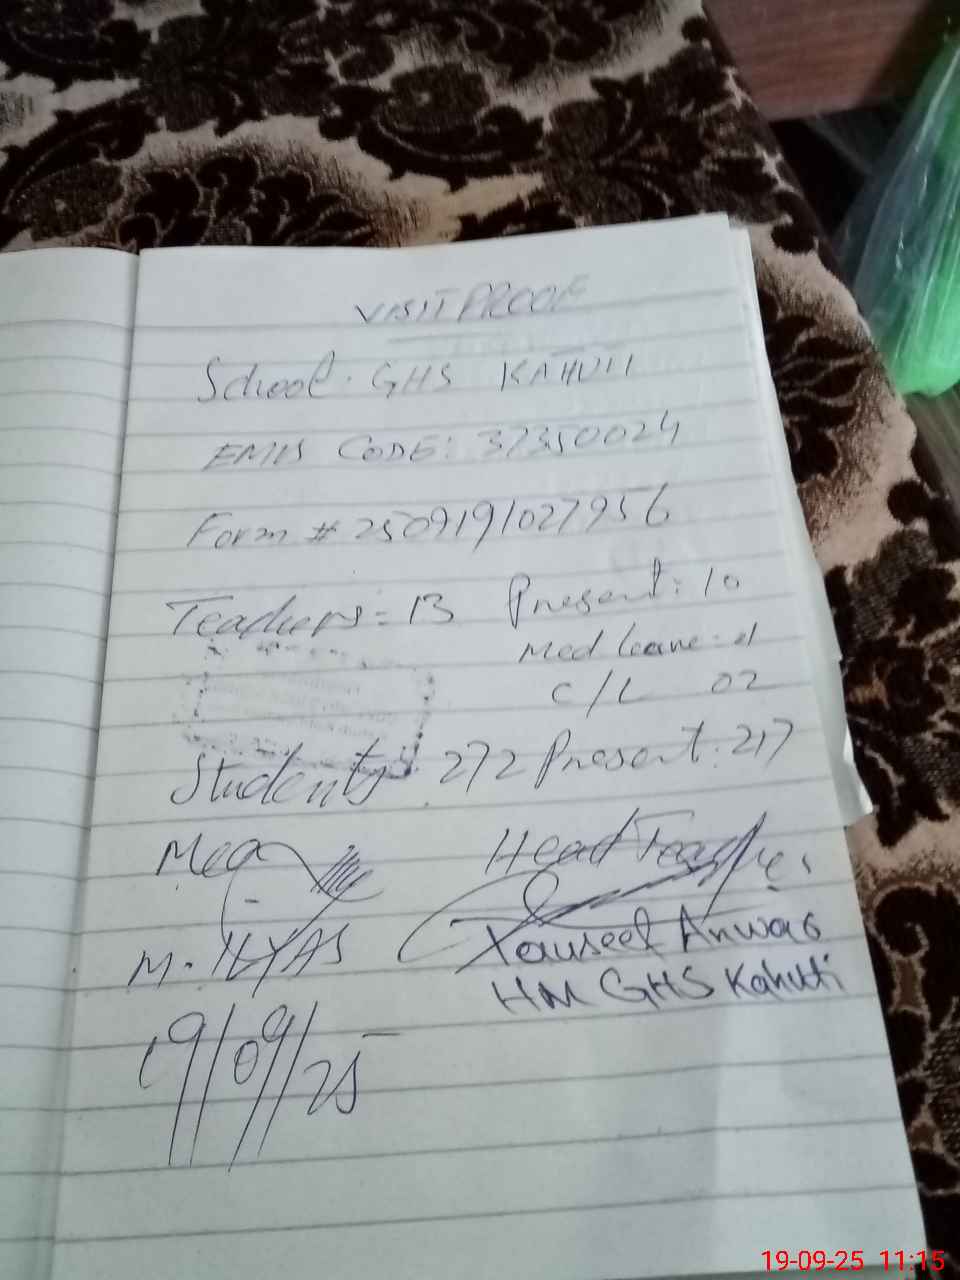 VISIT PROOF
School. GHS KAHUTI
EMIS CODE: 37350024
Form # 2509191027956
Teachers = 13 Present: 10
Med leave = 1
C/L 02
Students: 272 Present: 217
Mea Head Teacher
M. ILYAS Tauseef Anwar
HM GHS Kahuti
19/09/25
19-09-25 11:15